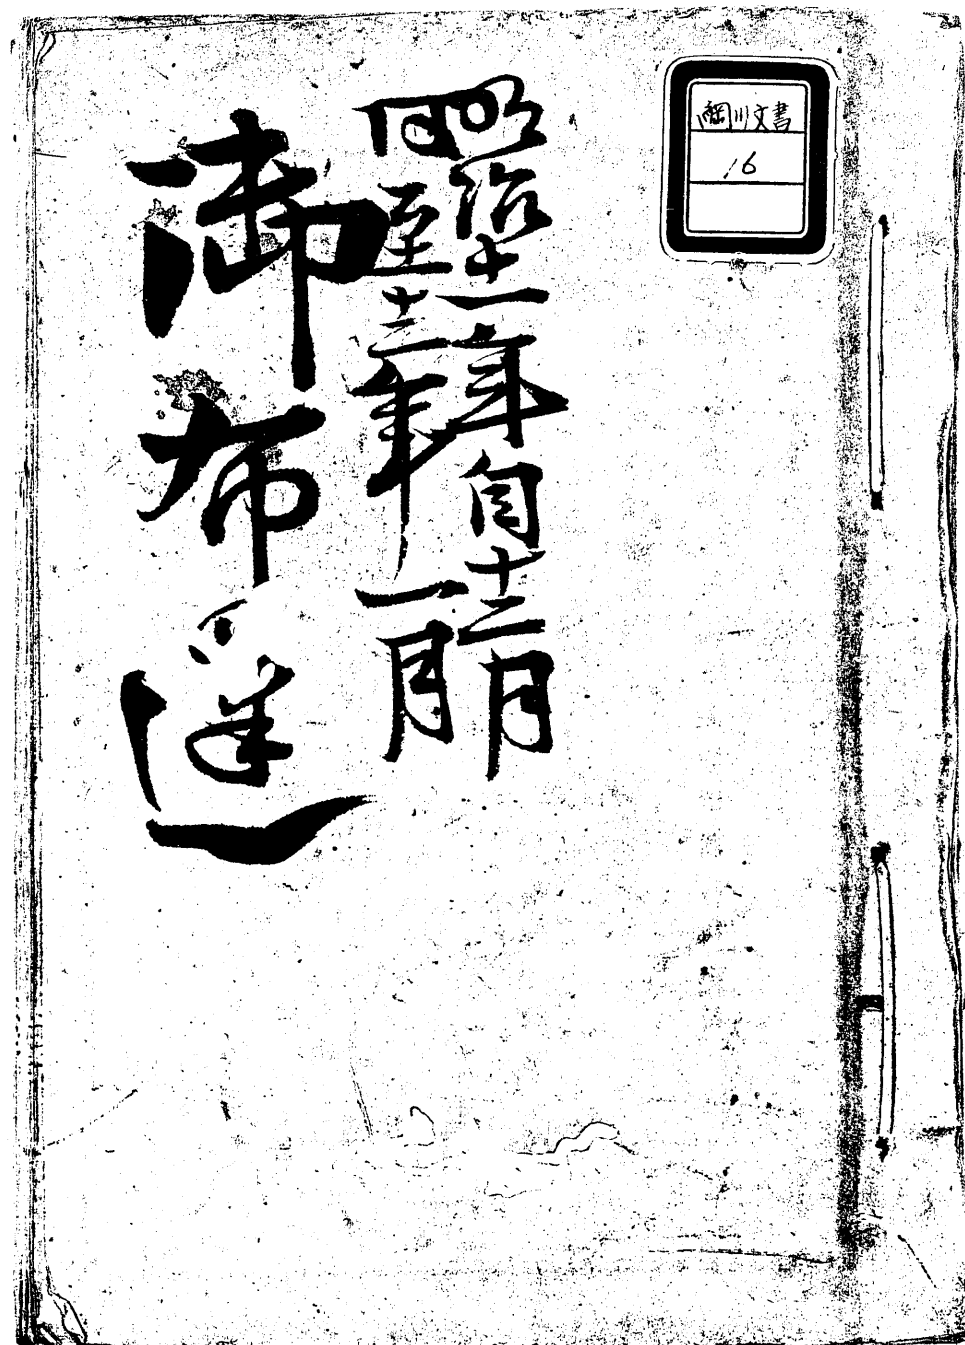 綱川文書
16
明治十一年自十二月
同至十三年一月
御布達